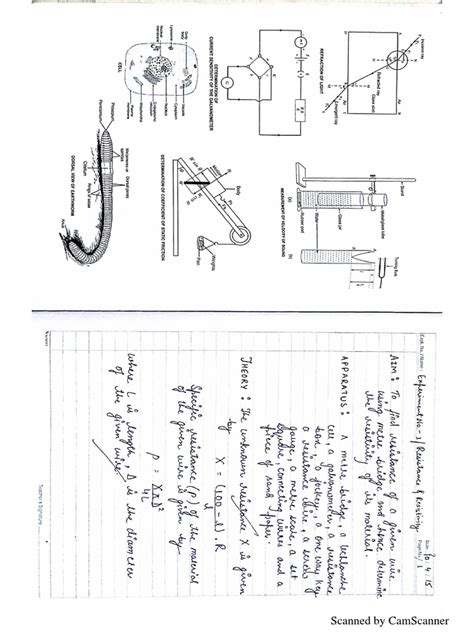 REFRACTION OF LIGHT
Incident ray
Glass slab
Refracted ray
Emergent ray
DETERMINATION OF
CURRENT SENSITIVITY OF THE GALVANOMETER
CELL
MEASUREMENT OF VELOCITY OF SOUND
Stand
Glass jar
Water
Rubber pad
Tuning fork
(a)
(b)
DETERMINATION OF COEFFICIENT OF STATIC FRICTION
Body
Weights
Pan
DORSAL VIEW OF EARTHWORM
Prostomium
Peristomium
Clitellum
Anus
Experiment No - 1 / Resistance & Resistivity
10/4/15
1
AIM: To find resistance of a given wire
using metre bridge and hence determine
the resistivity of its material.
APPARATUS: A metre bridge, a leclanche
cell, a galvanometer, a resistance
box, a jockey, a one way key,
a resistance wire, a screw
gauge, a metre scale, a set
square, connecting wires and a
piece of sand paper.
THEORY: The unknown resistance X is given
by X = (100 - l) . R
l
Specific resistance (ρ) of the material
of the given wire is given by-
ρ = XπD²
4L
where L is length, D is the diameter
of the given wire.
Teacher's Signature
Scanned by CamScanner